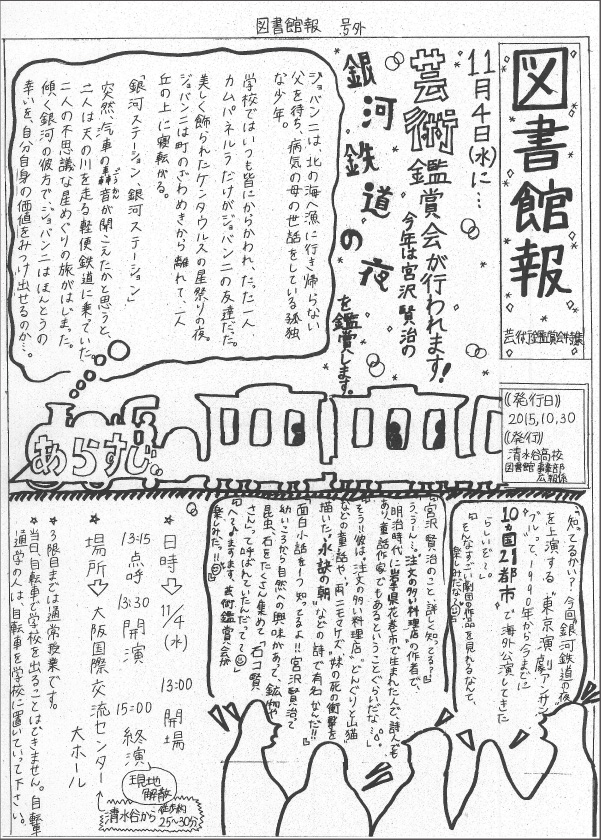 図書館報 号外
図書館報
芸術鑑賞会特集
《発行日》
2015,10,30
《発行》
清水谷高校
図書館 事業部
広報係
11月4日(水)に…
芸術鑑賞会が行われます!
今年は宮沢賢治の
銀河鉄道の夜
を鑑賞します。
ジョバンニは、北の海へ漁に行き帰らない
父を待ち、病気の母の世話をしている孤独
な少年。
学校ではいつも皆にからかわれ、たった一人、
カムパネルラだけがジョバンニの友達だった。
美しく飾られたケンタウルスの星祭りの夜。
ジョバンニは町のざわめきから離れて、一人
丘の上に寝転がる。
「銀河ステーション 銀河ステーション」
突然、汽車の轟音が聞こえたかと思うと、
ごうおん
二人は天の川を走る軽便鉄道に乗っていた。
二人の不思議な星めぐりの旅がはじまった。
傾く銀河の彼方で、ジョバンニはほんとうの
幸いを、自分自身の価値をみつけ出せるのか…。
あらすじ
『知ってるかぁ?今回「銀河鉄道の夜」
を上演する“東京演劇アンサン
ブル”って、1990年から今までに
10ヵ国21都市で海外公演してきた
らしいぞ〜。
そんなすごい劇団の作品を見れるなんて、
楽しみだな
『宮沢賢治のこと、詳しく知ってる?』
『う、うーん…。注文の多い料理店の作者で、
明治時代に岩手県花巻市で生まれたんで、詩人でも
あり、童話作家でもあるということぐらいだな…。』
『そう!!彼は、“注文の多い料理店”“どんぐりと山猫”
などの童話や、“雨ニモマケズ”妹の死の衝撃を
描いた“永訣の朝”などの詩で有名なんだ!!』
面白小話をもう1つ知ってるよ!!宮沢賢治って
幼いころから自然への興味があって、鉱物や
昆虫、石をたくさん集めて「石コ賢
さん」て呼ばれていたんだって
『へぇ〜。ますます、芸術鑑賞会が
楽しみだ!!』
★日時⇨11/4(水) 13:00 開場
13:15 点呼 13:30 開演 15:00 終演
現地解散
★場所⇨大阪国際交流センター
大ホール
清水谷から徒歩約25~30分
★3限目までは通常授業です。
★当日、自転車で学校を出ることはできません。自転車
通学の人は、自転車を学校に置いていって下さい。